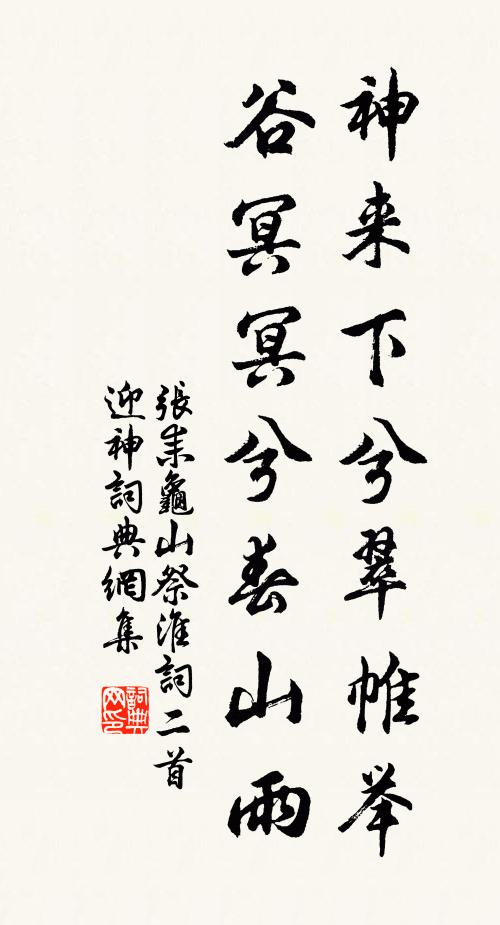 神来下兮翠帷举
谷冥冥兮春山雨
張耒龜山祭淮詞二首
迎神詞典網集
詞典网印